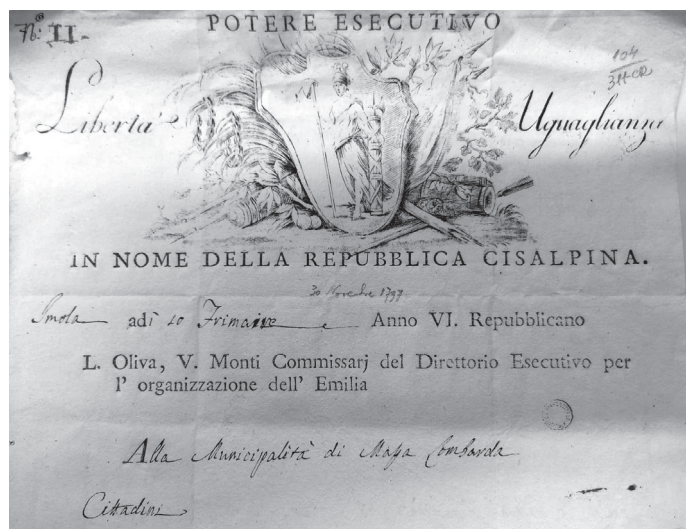 N.º II.
POTERE ESECUTIVO
104
Libertà Uguaglianza
IN NOME DELLA REPUBBLICA CISALPINA.
30 Novembre 1797
Imola adì 10 Frimaire Anno VI. Repubblicano
L. Oliva, V. Monti Commissarj del Direttorio Esecutivo per
l' organizzazione dell' Emilia
Alla Municipalità di Massa Lombarda
Cittadini